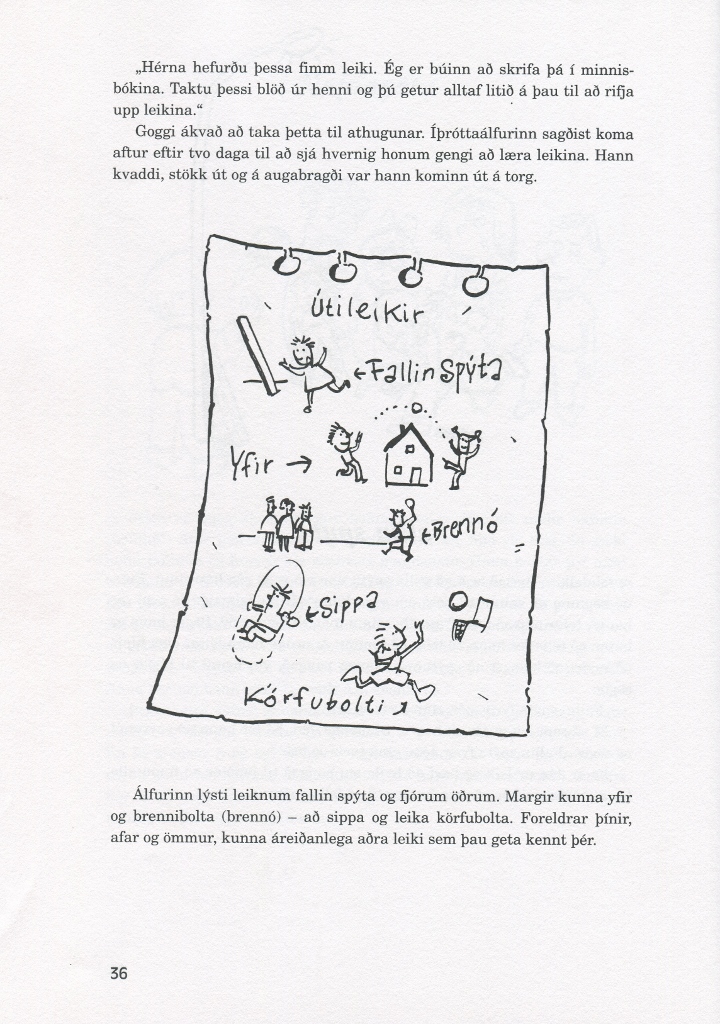 „Hérna hefurðu þessa fimm leiki. Ég er búinn að skrifa þá í minnis-
bókina. Taktu þessi blöð úr henni og þú getur alltaf litið á þau til að rifja
upp leikina.“
Goggi ákvað að taka þetta til athugunar. Íþróttaálfurinn sagðist koma
aftur eftir tvo daga til að sjá hvernig honum gengi að læra leikina. Hann
kvaddi, stökk út og á augabragði var hann kominn út á torg.
Útileikir
←Fallin Spýta
Yfir →
←Brennó
←Sippa
Körfubolti ↗
Álfurinn lýsti leiknum fallin spýta og fjórum öðrum. Margir kunna yfir
og brennibolta (brennó) – að sippa og leika körfubolta. Foreldrar þínir,
afar og ömmur, kunna áreiðanlega aðra leiki sem þau geta kennt þér.
36